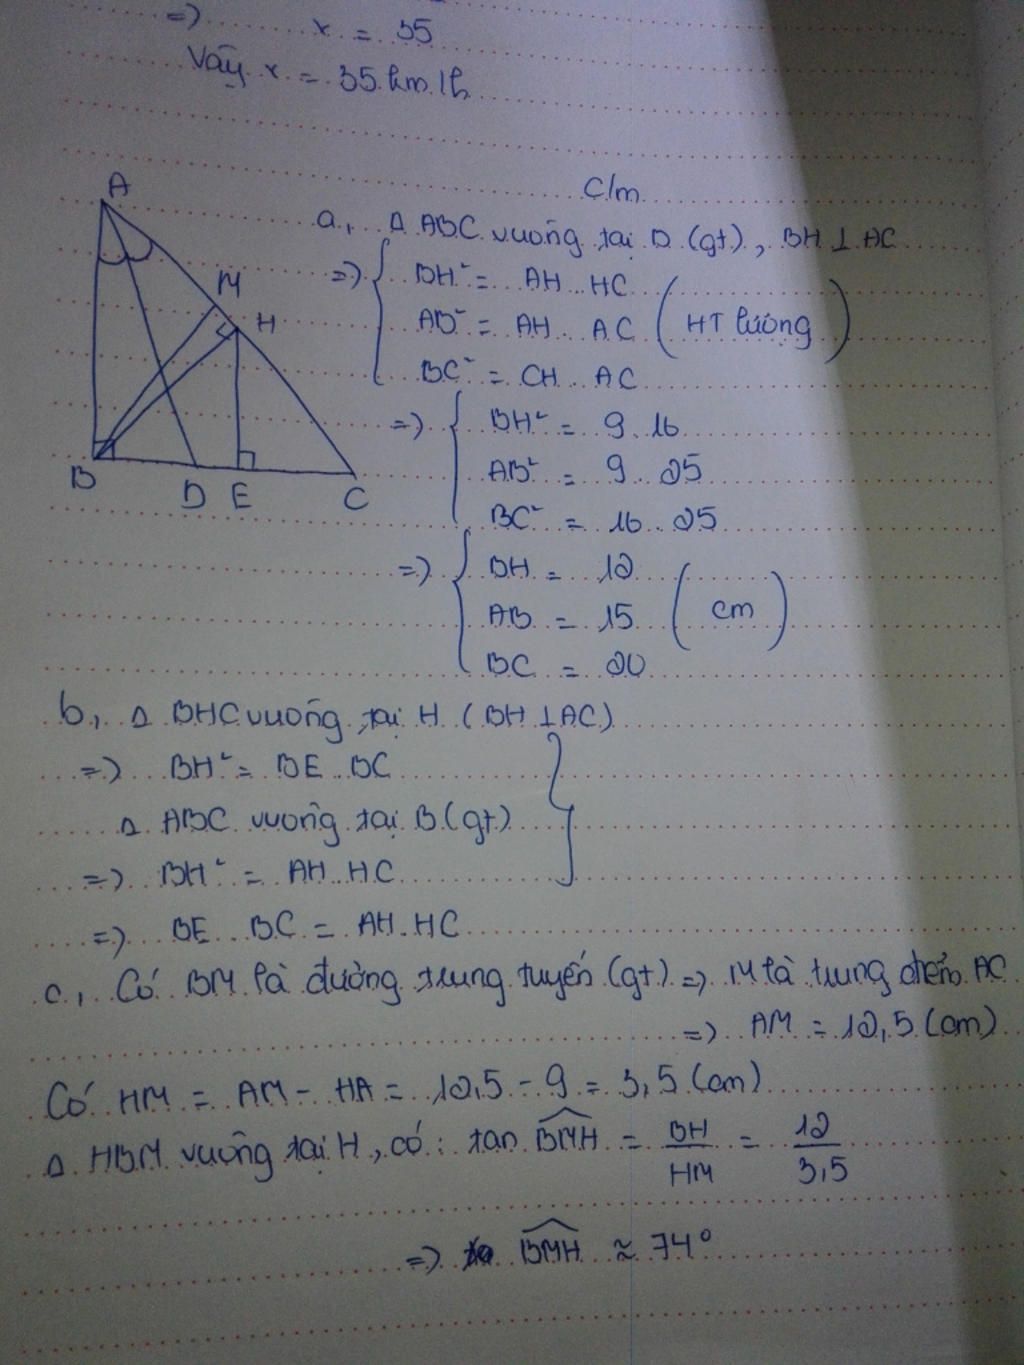 => x = 35
Vậy x = 35 km/h
C/m
a, Δ ABC vuông tại B (gt), BH ⊥ AC
=> { BH² = AH . HC
AB² = AH . AC ( HT lượng )
BC² = CH . AC
=> { BH² = 9 . 16
AB² = 9 . 25
BC² = 16 . 25
=> { BH = 12
AB = 15 ( cm )
BC = 20
A
M
H
B D E C
b, Δ BHC vuông tại H ( BH ⊥ AC )
=> BH² = BE . BC
Δ ABC vuông tại B (gt)
=> BH² = AH . HC
=> BE . BC = AH . HC
c, Có BM là đường trung tuyến (gt) => M là trung điểm AC
=> AM = 12,5 (cm)
Có HM = AM - HA = 12,5 - 9 = 3,5 (cm)
Δ HBM vuông tại H, có : tan BMH = BH/HM = 12/3,5
=> BMH ≈ 74°